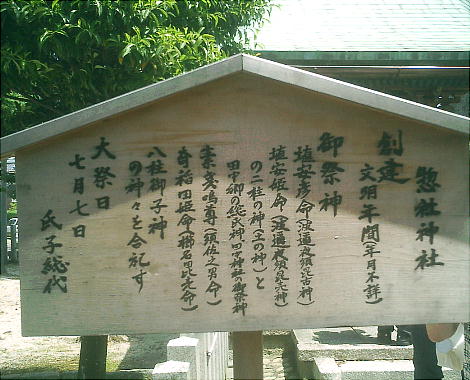 惣社神社
創建
文明年間(年月不詳)
御祭神
埴安彦命(波邇夜須毘古神)
埴安姫命(波邇夜須毘売神)
の二柱の神(土の神)と
田中郷の総氏神田中神社の御祭神
素戔嗚尊(須佐之男命)
奇稲田姫命(櫛名田比売命)
八柱御子神
の神々を合祀す
大祭日
七月七日
氏子総代